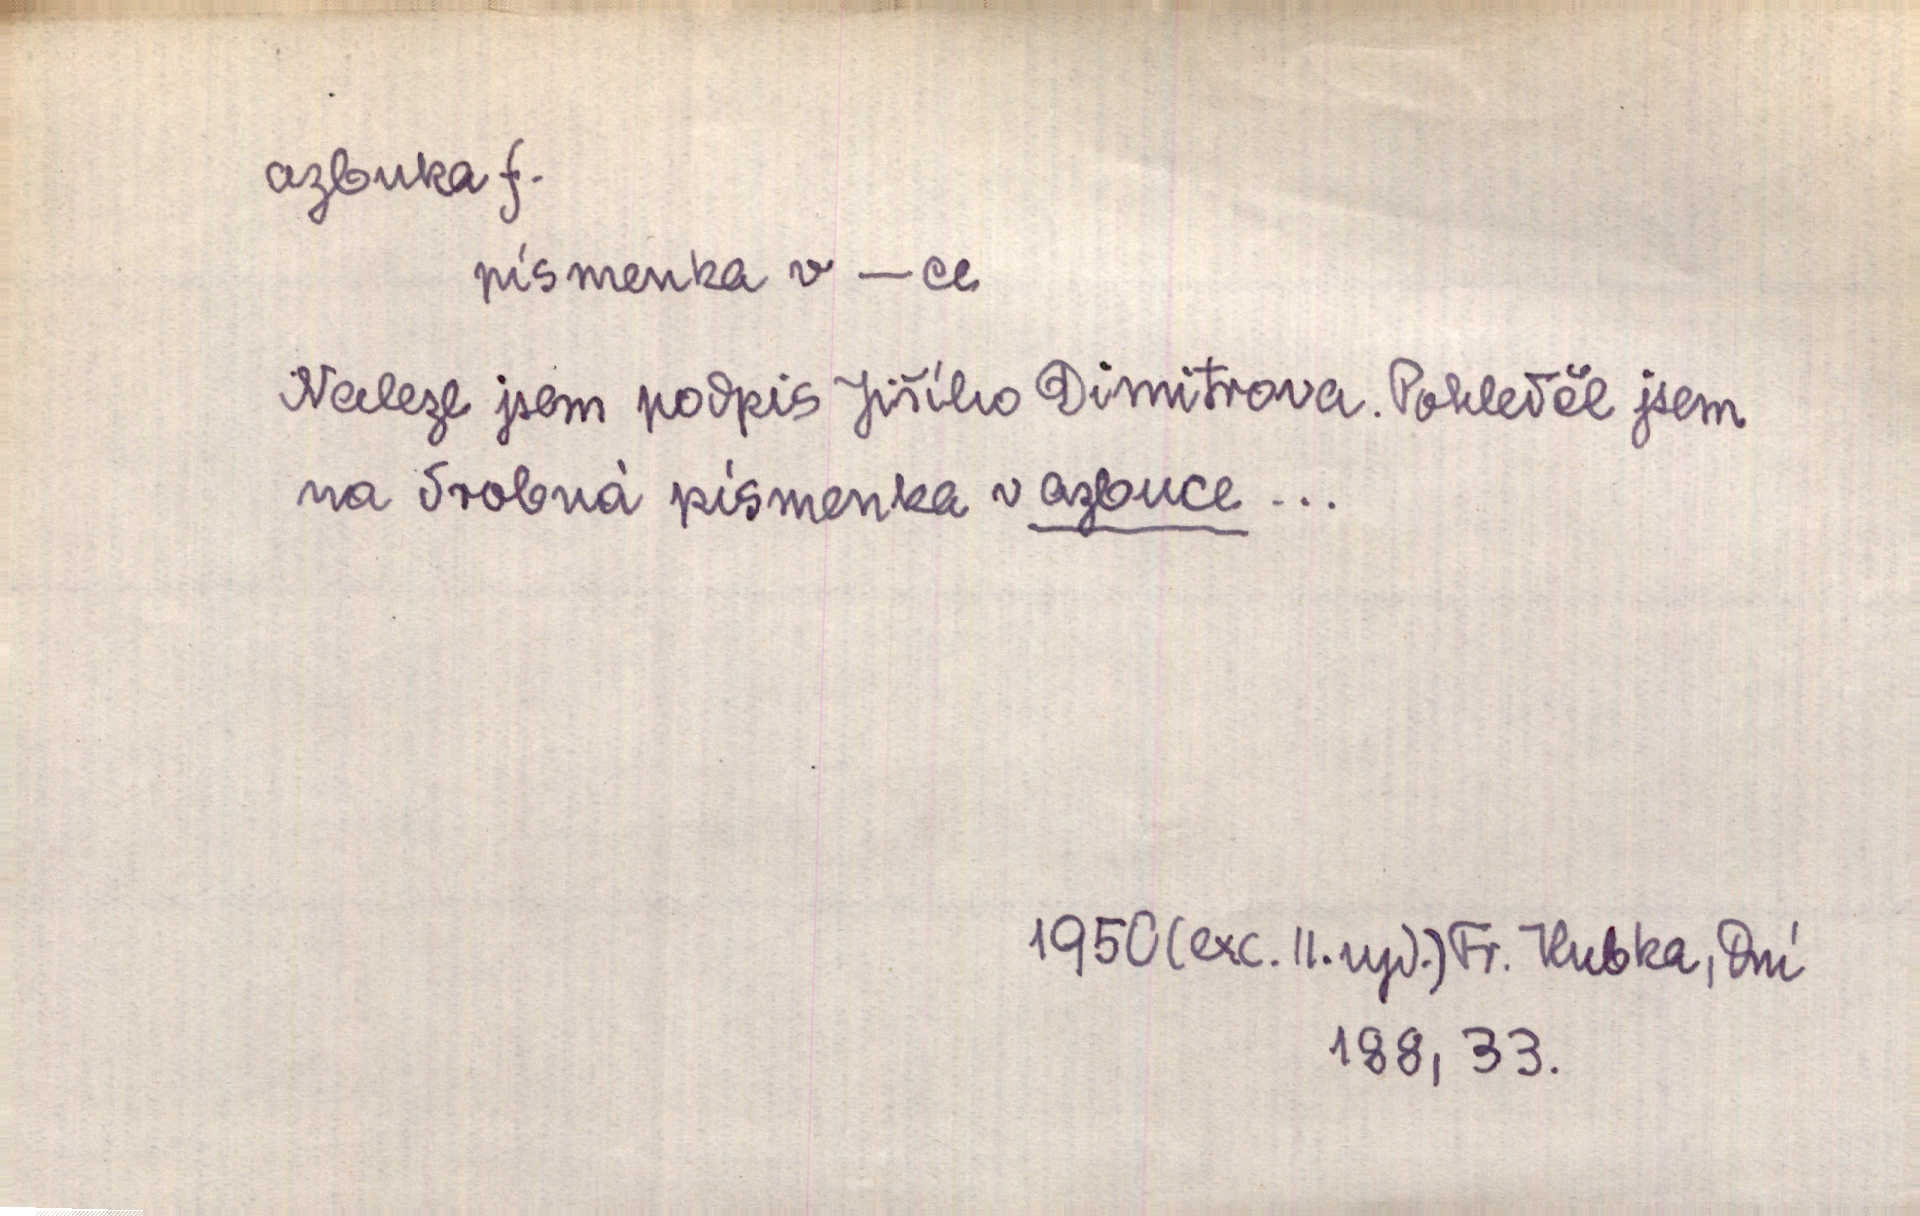 azbuka f.
písmenka v —ce
Nalezl jsem podpis Jiřího Dimitrova. Pohleděl jsem
na drobná písmenka v azbuce ...
1950 (exc. II. vyd.) Fr. Kubka, Dni
188, 33.